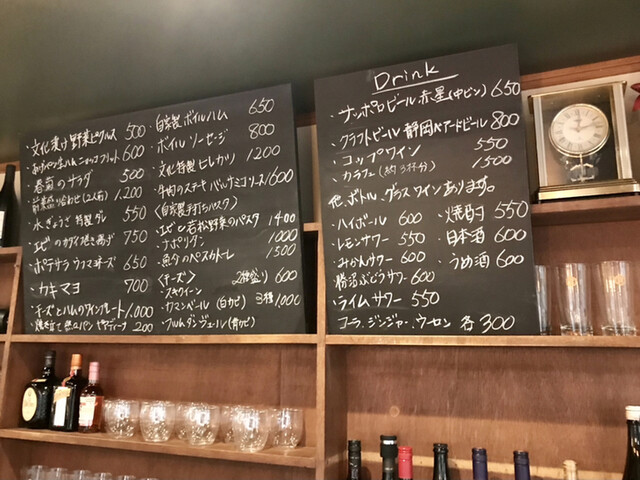 ・文化漬け野菜ピクルス 500
600
・春菊のサラダ 500
・前菜盛り合わせ(2人前) 1,200
・水ぎょうざ 特製ダレ 550
750
・ポテサラ 650
・カキマヨ 700
・チーズとハムのワインプレート 1,000
200
・自家製 ボイルハム 650
・ボイル ソーセージ 800
・文化特製 ヒレカツ 1200
・牛肉のステーキ バルサミコソース 1600
〈自家製手打ちパスタ〉
・エビと若松野菜のパスタ 1400
・ナポリタン 1000
・魚介のペスカトーレ 1500
〈チーズ〉 2種盛り 600
・カマンベール(白カビ) 3種 1,000
・フルムダンヴェール(青カビ)
Drink
・サッポロビール 赤星(中ビン) 650
・クラフトビール 静岡 800
・コップワイン 550
・カラフェ(約3杯分) 1,500
他、ボトル、グラスワインあります。
・ハイボール 600
・レモンサワー 550
・みかんサワー 600
・勝沼ぶどうサワー 600
・ライムサワー 550
・焼酎 550
・日本酒 600
・うめ酒 600
・コーラ、ジンジャー、ウーロン 各300